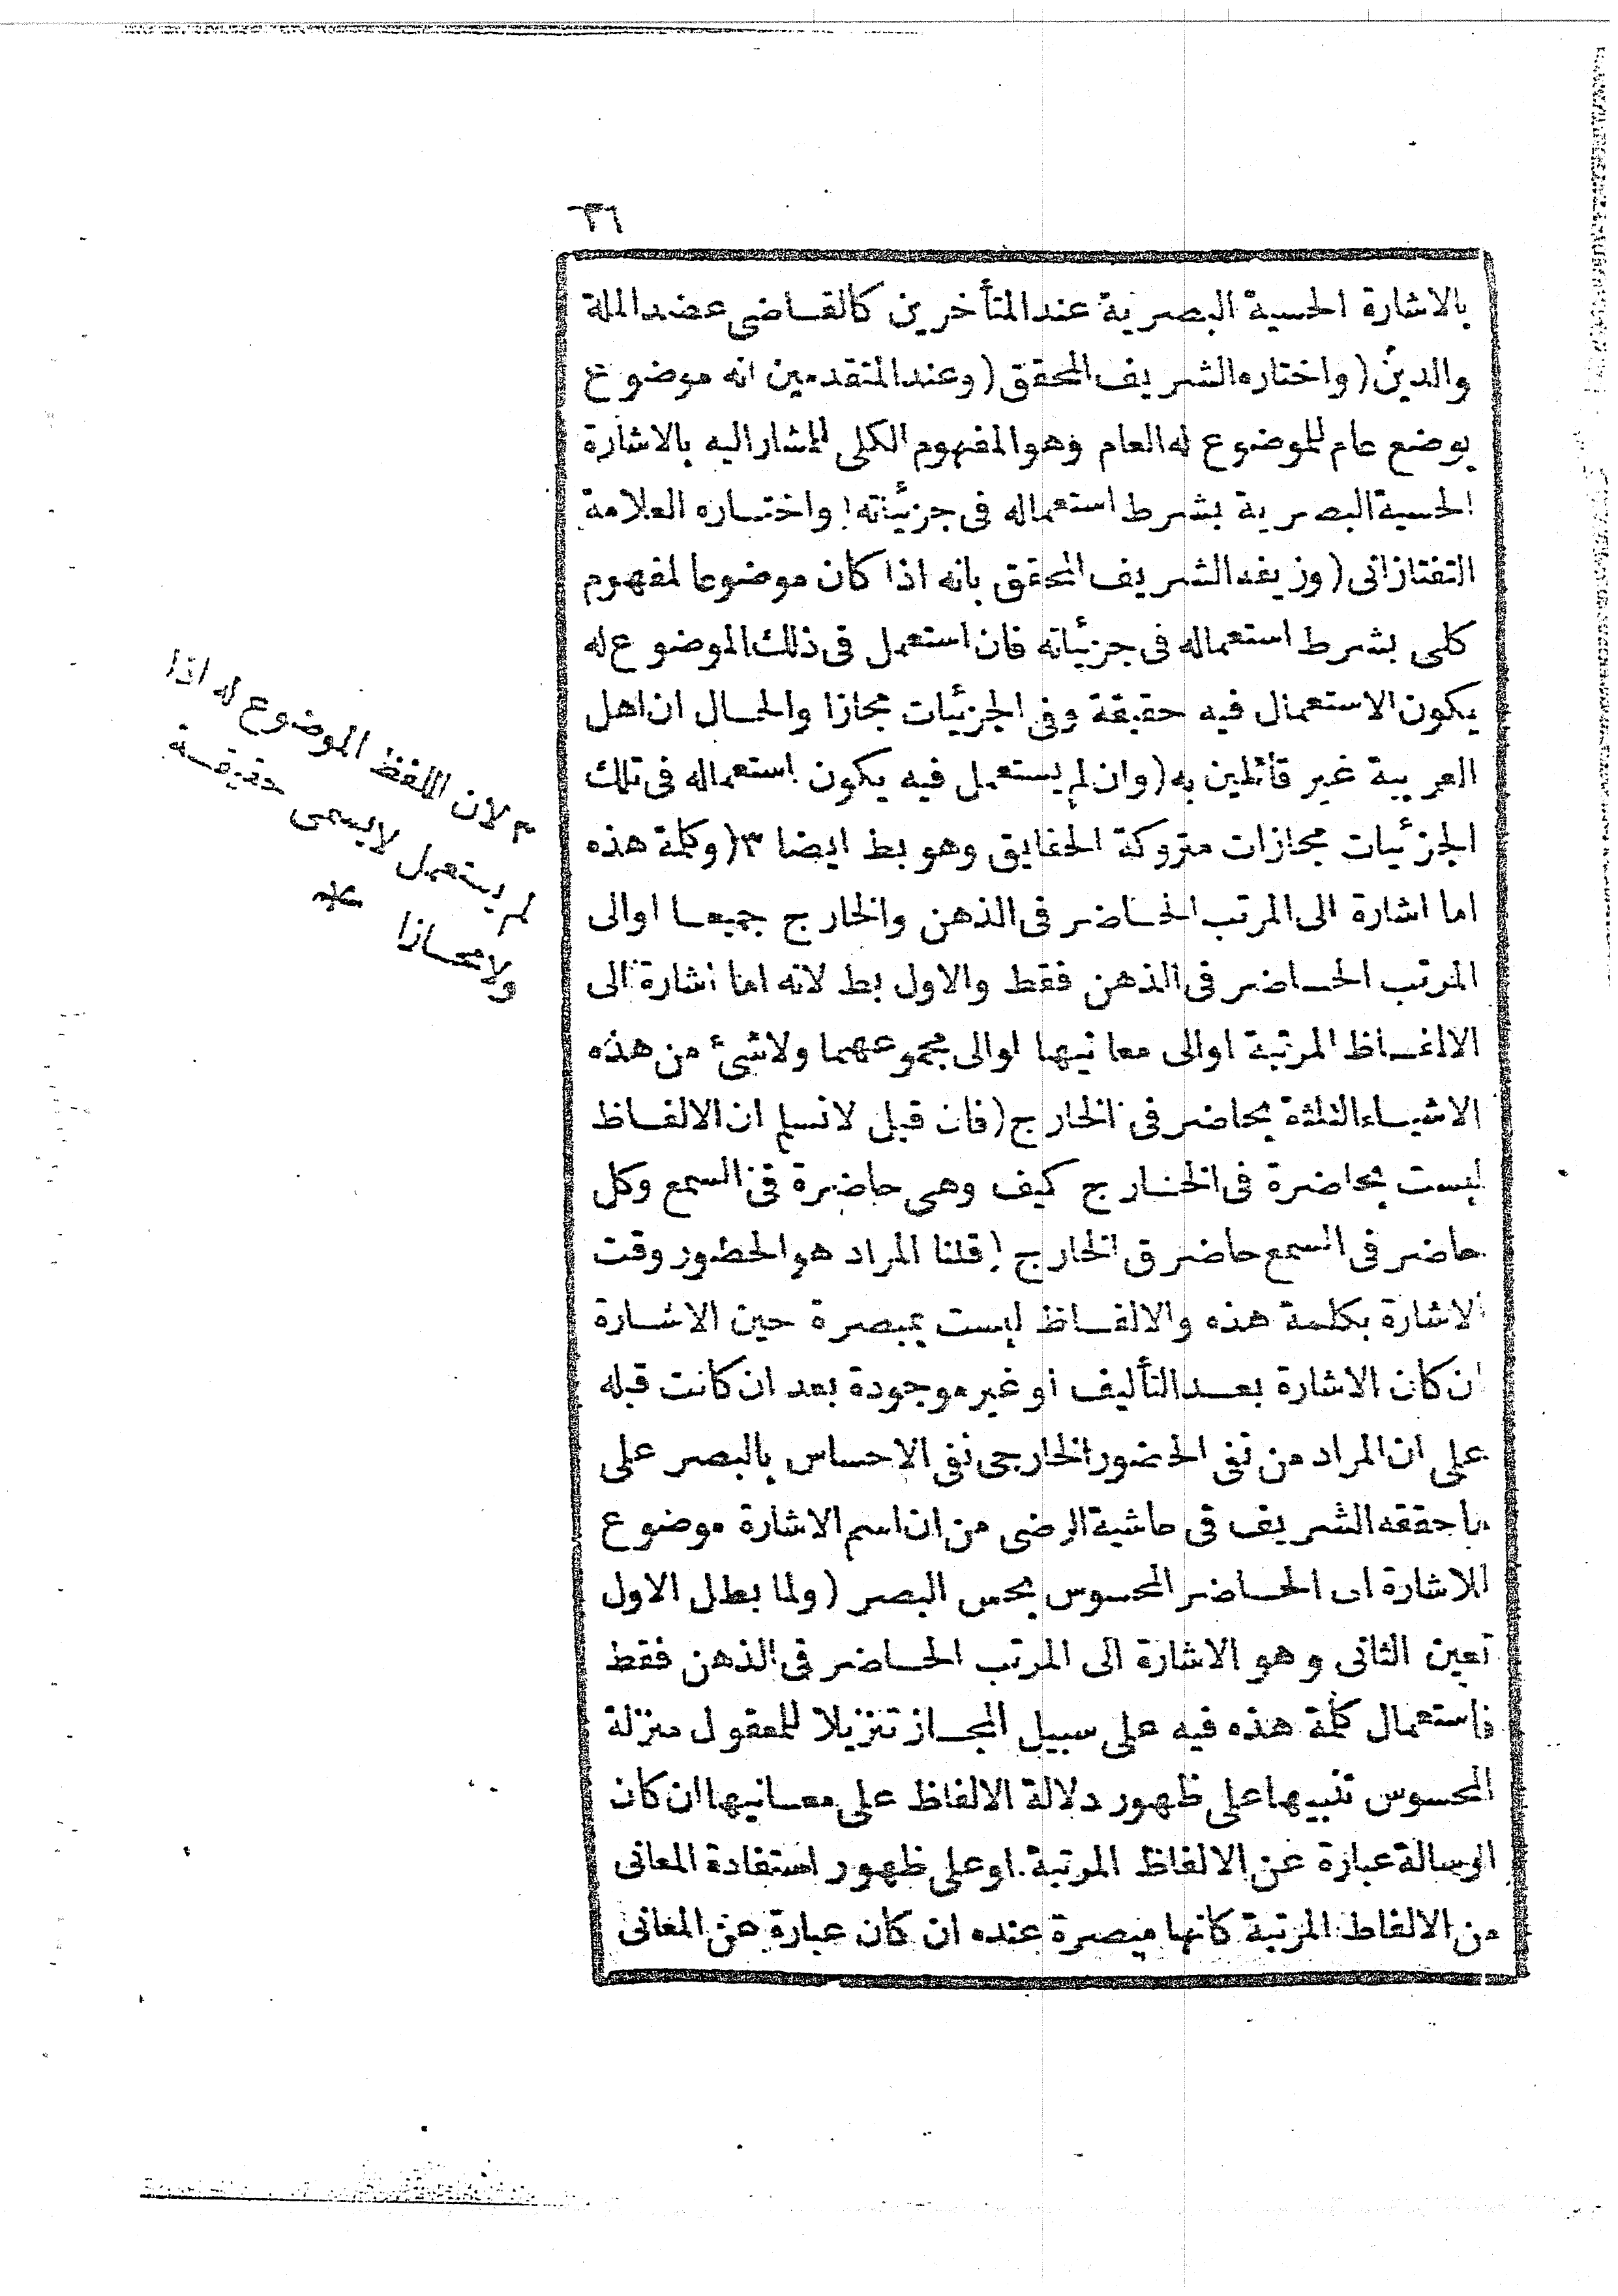 ٣٦
بالاشارة الحسية البصرية عند المتأخرين كالقاضى عضد الملة
والدين ( واختاره الشريف المحقق ( وعند المتقدمين انه موضوع
بوضع عام للموضوع له العام وهو المفهوم الكلى للمشار اليه بالاشارة
الحسية البصرية بشرط استعماله فى جزئياته ( واختاره العلامة
التفتازانى ( وزيفه الشريف المحقق بانه اذا كان موضوعا لمفهوم
كلى بشرط استعماله فى جزئياته فان استعمل فى ذلك الموضوع له
يكون الاستعمال فيه حقيقة وفى الجزئيات مجازا والحال ان اهل
العربية غير قائلين به ( وان لم يستعمل فيه يكون استعماله فى تلك
الجزئيات مجازات متروكة الحقايق وهو بط ايضا ٣ ( وكلمة هذه
اما اشارة الى المرتب الحاضر فى الذهن والخارج جميعا اوالى
المرتب الحاضر فى الذهن فقط والاول بط لانه اما اشارة الى
الالفاظ المرتبة اوالى معانيها اوالى مجموعهما ولاشئ من هذه
الاشياء الثلثة بحاضر فى الخارج ( فان قيل لانسلم ان الالفاظ
ليست بحاضرة فى الخارج كيف وهى حاضرة فى السمع وكل
حاضر فى السمع حاضر فى الخارج ( قلنا المراد هو الحضور وقت
الاشارة بكلمة هذه والالفاظ ليست بمبصرة حين الاشارة
ان كان الاشارة بعد التأليف او غير موجودة بعد ان كانت قبله
على ان المراد من نفى الحضور الخارجى نفى الاحساس بالبصر على
ما حققه الشريف فى حاشية الرضى من ان اسم الاشارة موضوع
للاشارة الى الحاضر المحسوس بحس البصر ( ولما بطل الاول
تعين الثانى وهو الاشارة الى المرتب الحاضر فى الذهن فقط
فاستعمال كلمة هذه فيه على سبيل المجاز تنزيلا للمعقول منزلة
المحسوس تنبيها على ظهور دلالة الالفاظ على معانيها ان كان
الرسالة عبارة عن الالفاظ المرتبة . اوعلى ظهور استفادة المعانى
من الالفاظ المرتبة كانها مبصرة عنده ان كان عبارة عن المعانى
٣ لان اللفظ الموضوع له اذا
لم يستعمل لايسمى حقيقة
ولامجازا